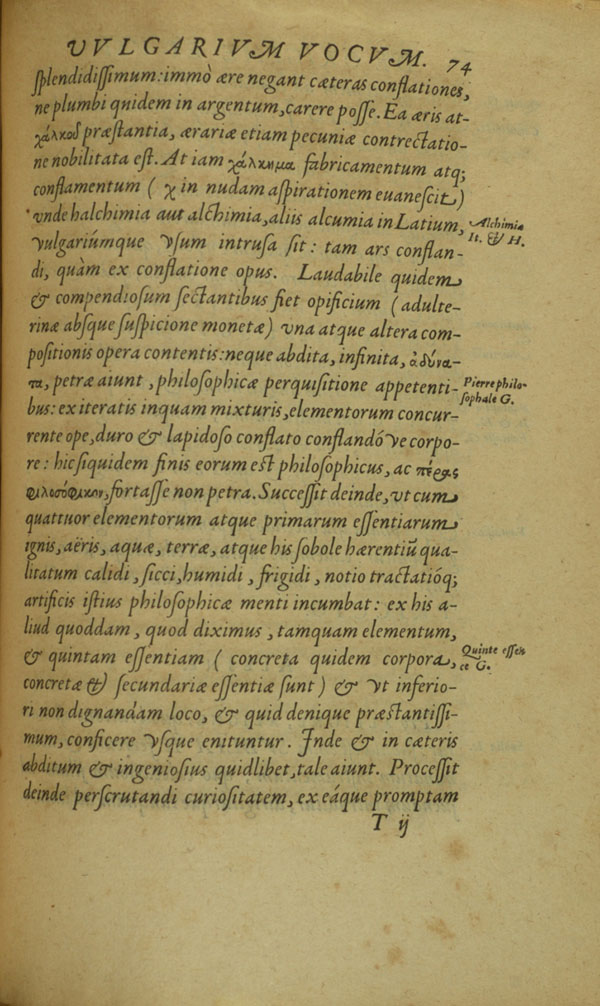 VVLGARIVM VOCVM. 74
ſplendidiſſimum: immò ære negant cæteras conflationes,
ne plumbi quidem in argentum, carere poſſe. Ea æris at-
χάλκοῦ præſtantia, ærariæ etiam pecuniæ contrectatio-
ne nobilitata eſt. At iam χάλκημα fabricamentum atq;
conflamentum ( χ in nudam aſpirationem euaneſcit )
vnde halchimia aut alchimia, aliis alcumia in Latium,
vulgariúmque vſum intruſa ſit: tam ars conflan-
di, quàm ex conflatione opus. Laudabile quidem
& compendioſum ſectantibus fiet opificium ( adulte-
rinæ abſque ſuſpicione monetæ) vna atque altera com-
poſitionis opera contentis: neque abdita, infinita, ἀδύνα-
τα, petræ aiunt, philoſophicæ perquiſitione appetenti-
bus: ex iteratis inquam mixturis, elementorum concur-
rente ope, duro & lapidoſo conflato conflandóve corpo-
re: hic ſiquidem finis eorum eſt philoſophicus, ac πέρας
φιλοσόφικον, fortaſſe non petra. Succeſſit deinde, vt cum
quattuor elementorum atque primarum eſſentiarum
ignis, aëris, aquæ, terræ, atque his ſobole hærentiū qua-
litatum calidi, ſicci, humidi, frigidi, notio tractatióq;
artificis iſtius philoſophicæ menti incumbat: ex his a-
liud quoddam, quod diximus, tamquam elementum,
& quintam eſſentiam ( concreta quidem corpora,
concretæ & ſecundariæ eſſentiæ ſunt ) & vt inferio-
ri non dignandam loco, & quid denique præſtantiſſi-
mum, conficere vſque enituntur. Inde & in cæteris
abditum & ingenioſius quidlibet, tale aiunt. Proceſſit
deinde perſcrutandi curioſitatem, ex eáque promptam
T ij
Alchimia
It. & H.
Pierre philo-
ſophale G.
Quinte eſſen
ce G.